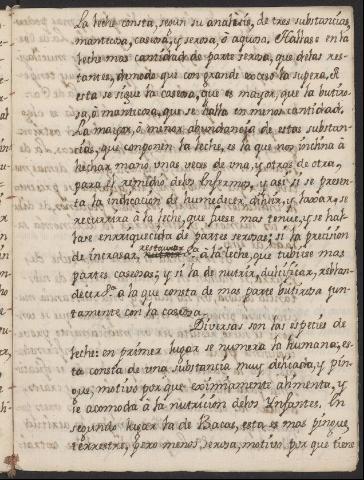 La leche consta, segun su analisis, de tres substancias,
mantecosa, caseosa, y serosa, ô aquosa. Hallase en la
leche mas cantidad de parte serosa, que delas res-
tantes, demodo que con grande exceso la supera, â
esta se sigue la caseosa, que es mayor, que la butiro-
sa, ô mantecosa, que se halla en menor cantidad.
La mayor, ô minor abundancia de estas substan-
cias, que componen la leche, es la que nos inclina â
hechar mano unas veces de una, y otras de otra,
para el remedio delos Enfermos, y asi si se presen-
ta la indicacion de humedecer, diluir, y laxar se
recurrirâ â la leche, que fuese mas tenue, y se hal-
lare enriquecida de parte serosa; si la precision
restaurar
de incrasar, &.ª â la leche, que tubiese mas
partes caseosas; y si la de nutrir, dulcificar, restan-
&.ª â la que consta de mas parte butirosa jun-
tamente con la caseosa.
Diversas son las especies de
leche: en primer lugar se numera la humana; es-
ta consta de una substancia muy delicada, y pin-
que, motivo por que eximiamente alimenta, y
se acomoda â la nutricion delos Ynfantes. En
segundo lugar la de Bacas, esta es mas pinque,
terrestre, pero menos serosa, motivo por que tiene